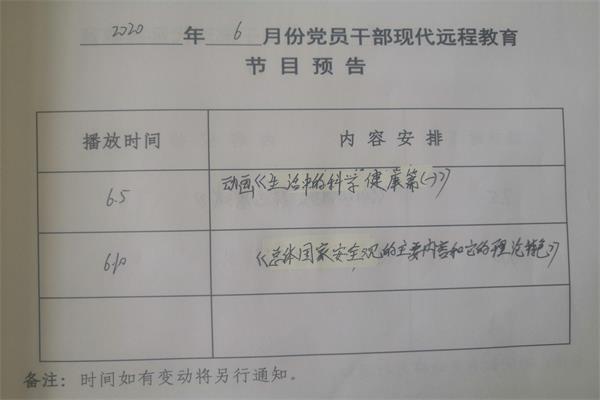 2020 年 6 月份党员干部现代远程教育
节目预告
播放时间 内容安排
6.5 动画《生活中的科学 健康篇(一)》
6.10 《总体国家安全观的主要内容和它的理论特色》
备注：时间如有变动将另行通知。